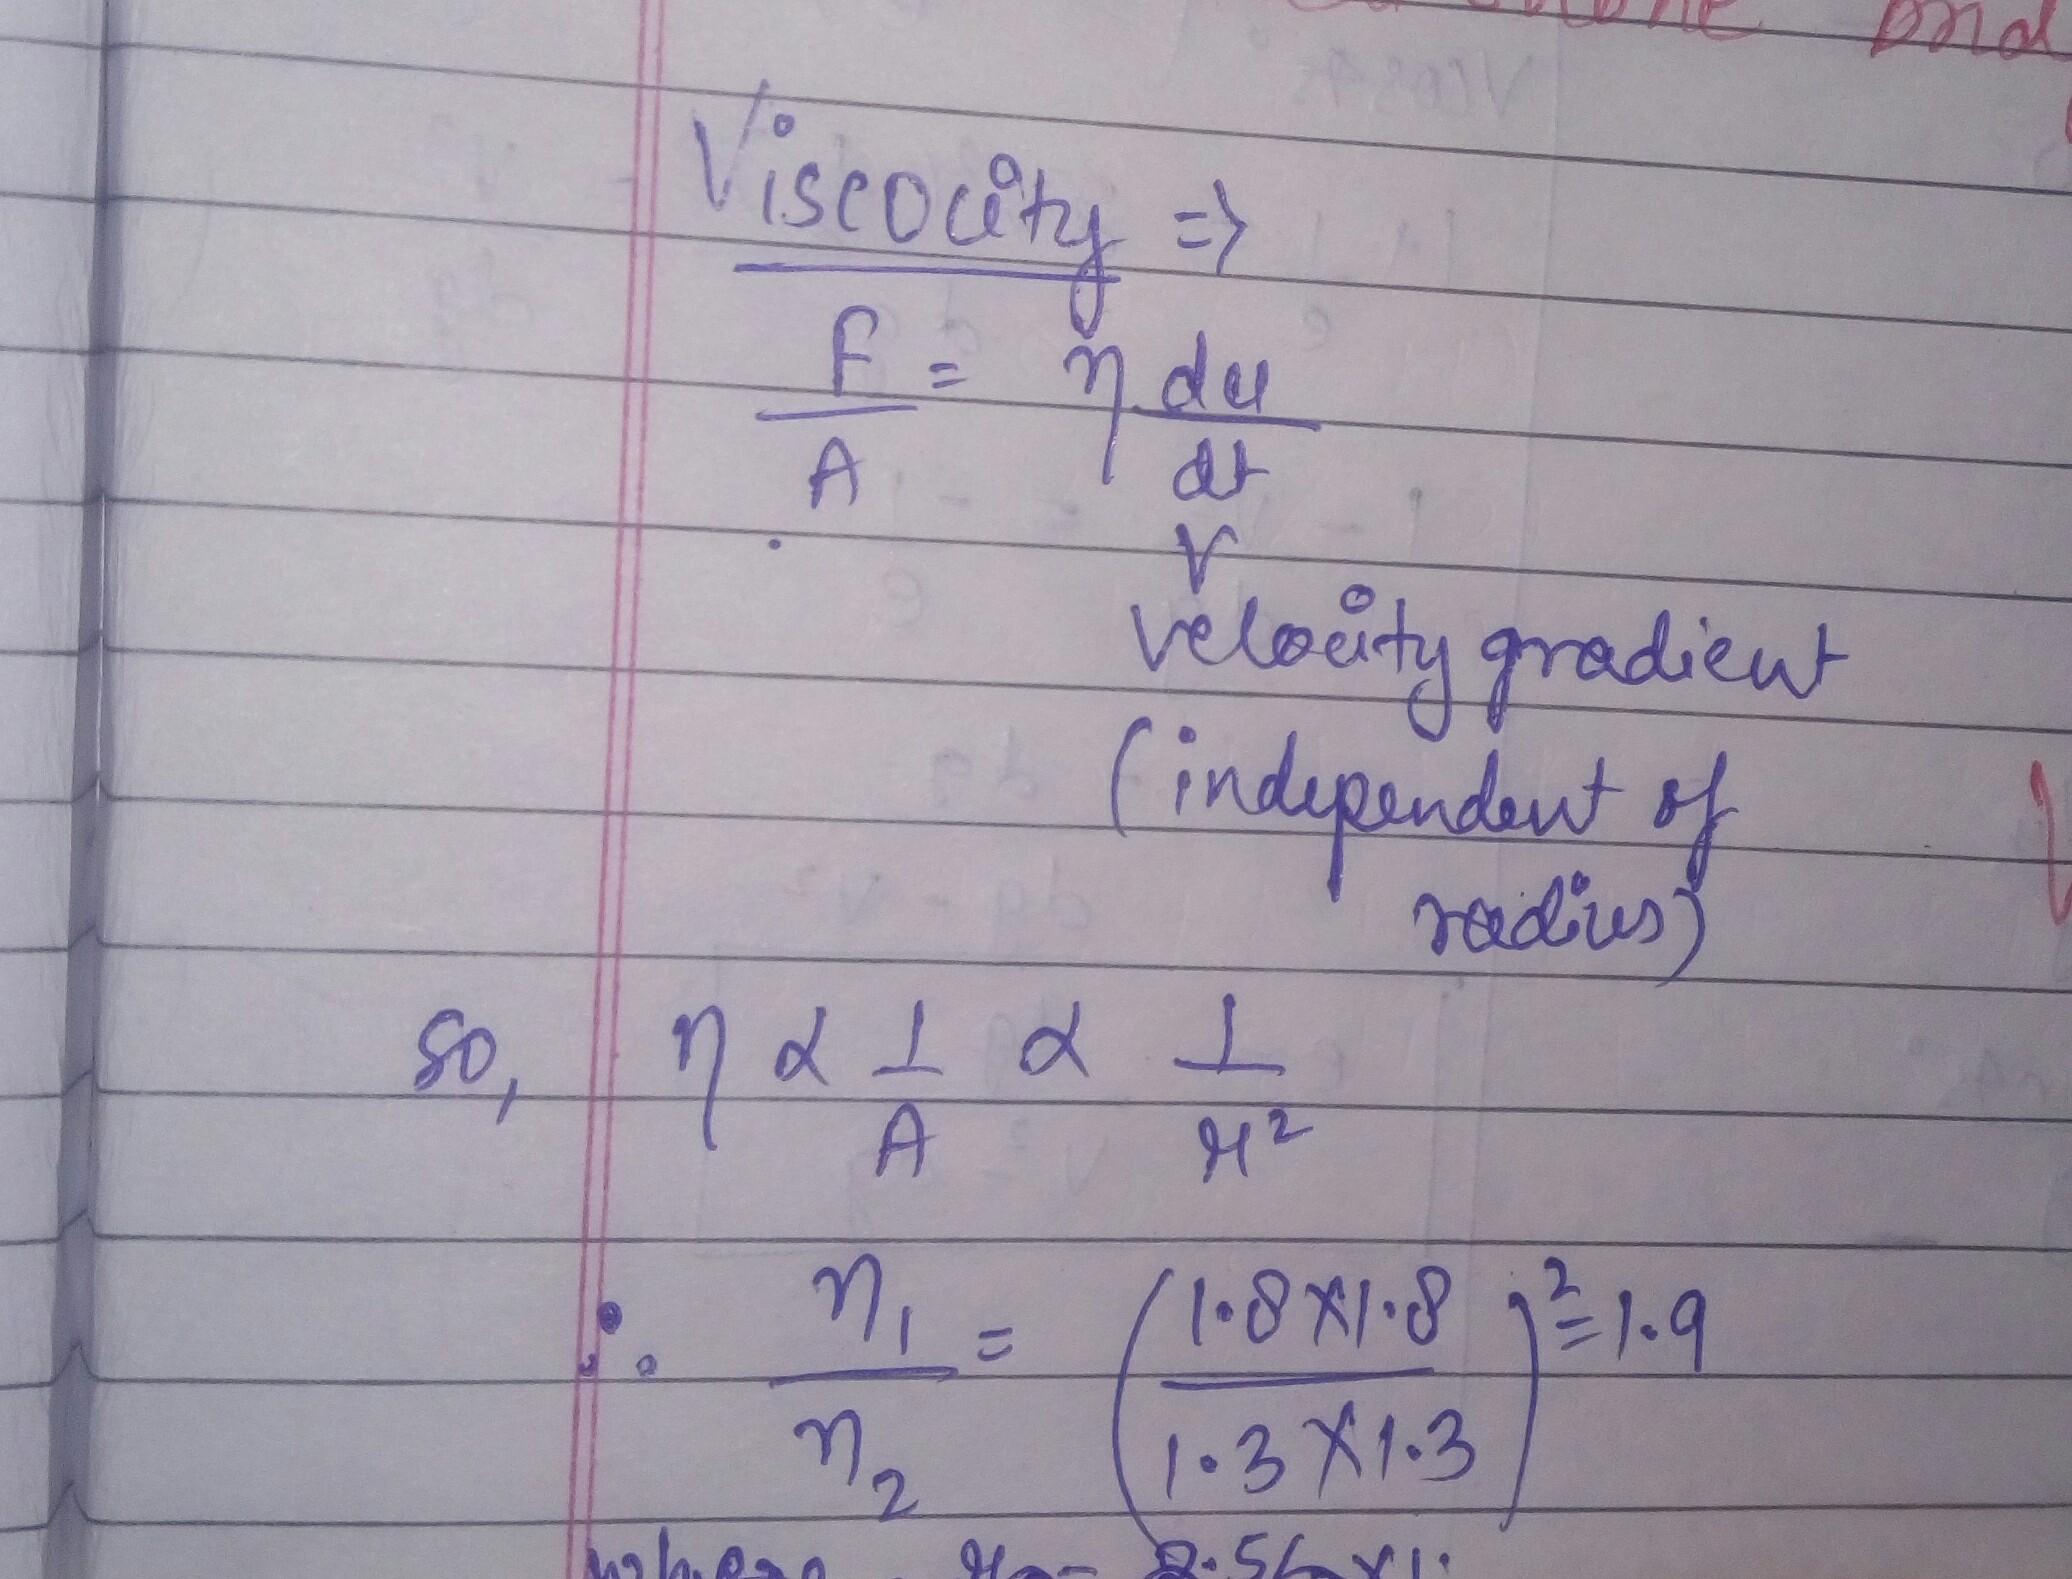 and
Viscocity =>
F/A = η du/dt
velocity gradient
(independent of
radius)
so, η α 1/A α 1/r²
∴ η₁/η₂ = (1.8×1.8 / 1.3×1.3)² = 1.9
where